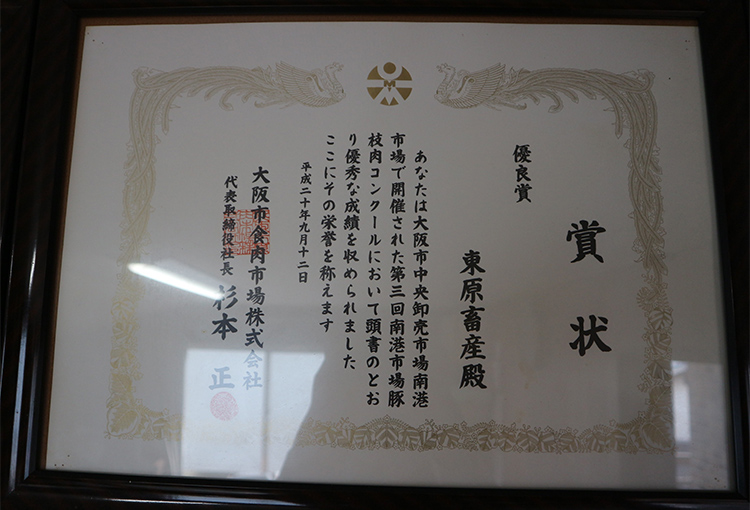 賞状
優良賞
東原畜産殿
あなたは大阪市中央卸売市場南港
市場で開催された第三回南港市場豚
枝肉コンクールにおいて頭書のとお
り優秀な成績を収められました
ここにその栄誉を称えます
平成二十年九月十二日
大阪市食肉市場株式会社
代表取締役社長 杉本 正